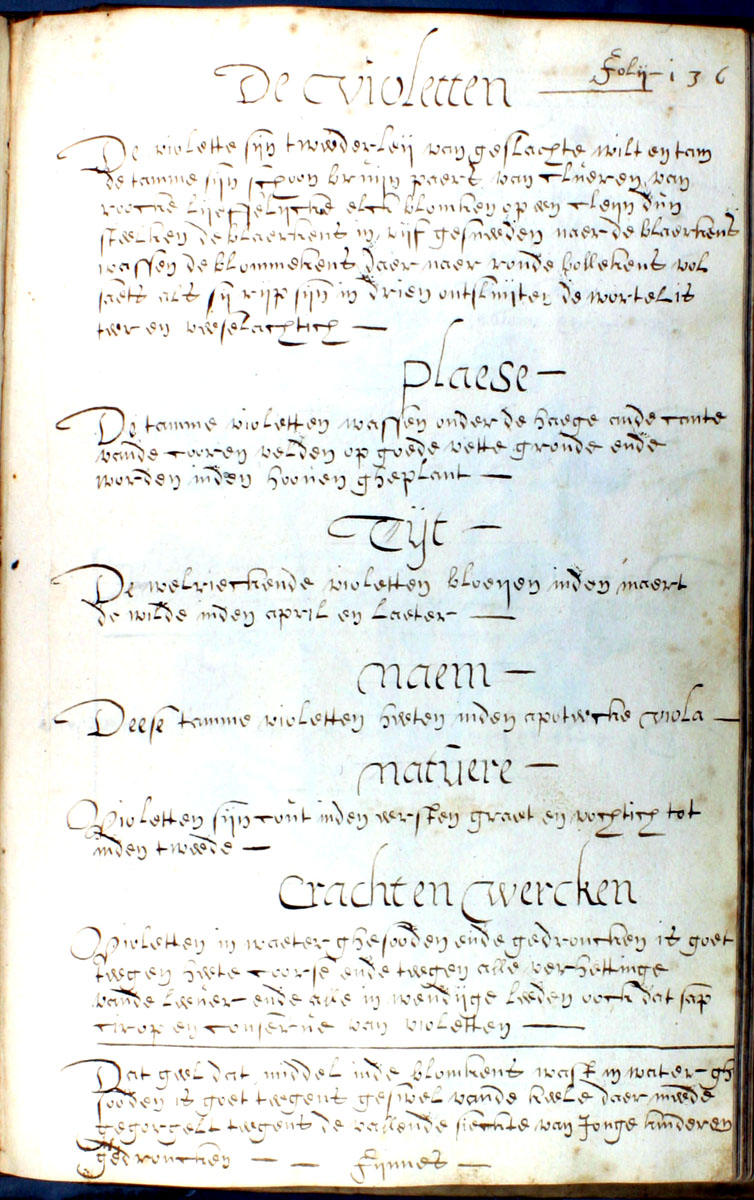 Folij 136
De violetten
De violette sijn tweederleij van geslachte wilt en tam
de tamme sijn schoon bruijn paers van clueren van
roocke lieffelijcke elck blomken op een cleijn dun
steelken de blaerkens in vijf gesneeden naer de blaerkens
wassen de blommekens daer naer ronde bollekens vol
saets als sij rijp sijn in drien ontsluijten de wortel is
teer en veeselachtich —
Plaese —
De tamme violetten wassen onder de haege ande cante
vande cooren velden op goede vette gronde ende
worden inden hooven gheplant —
Tijt —
De welrieckende violetten bloeijen inden maert
de wilde inden april en laeter —
Naem —
Deese tamme violetten heeten inden apoteecke viola —
Natuere —
Violetten sijn cout inden eersten graet en vochtich tot
inden tweede —
Crachten Wercken
Violetten in waeter ghesooden ende gedroncken is goet
teegen heete coorse ende teegen alle verhettinge
vande leever ende alle in wendijge leeden oock dat sap
cirop en conserve van violetten —
Dat geel dat middel inde blomkens wast in water gh
sooden is goet teegens geswel vande keele daer meede
gegorgelt teegens de vallende sieckte van Jonge kinderen
gedroncken — — Fijnnes —